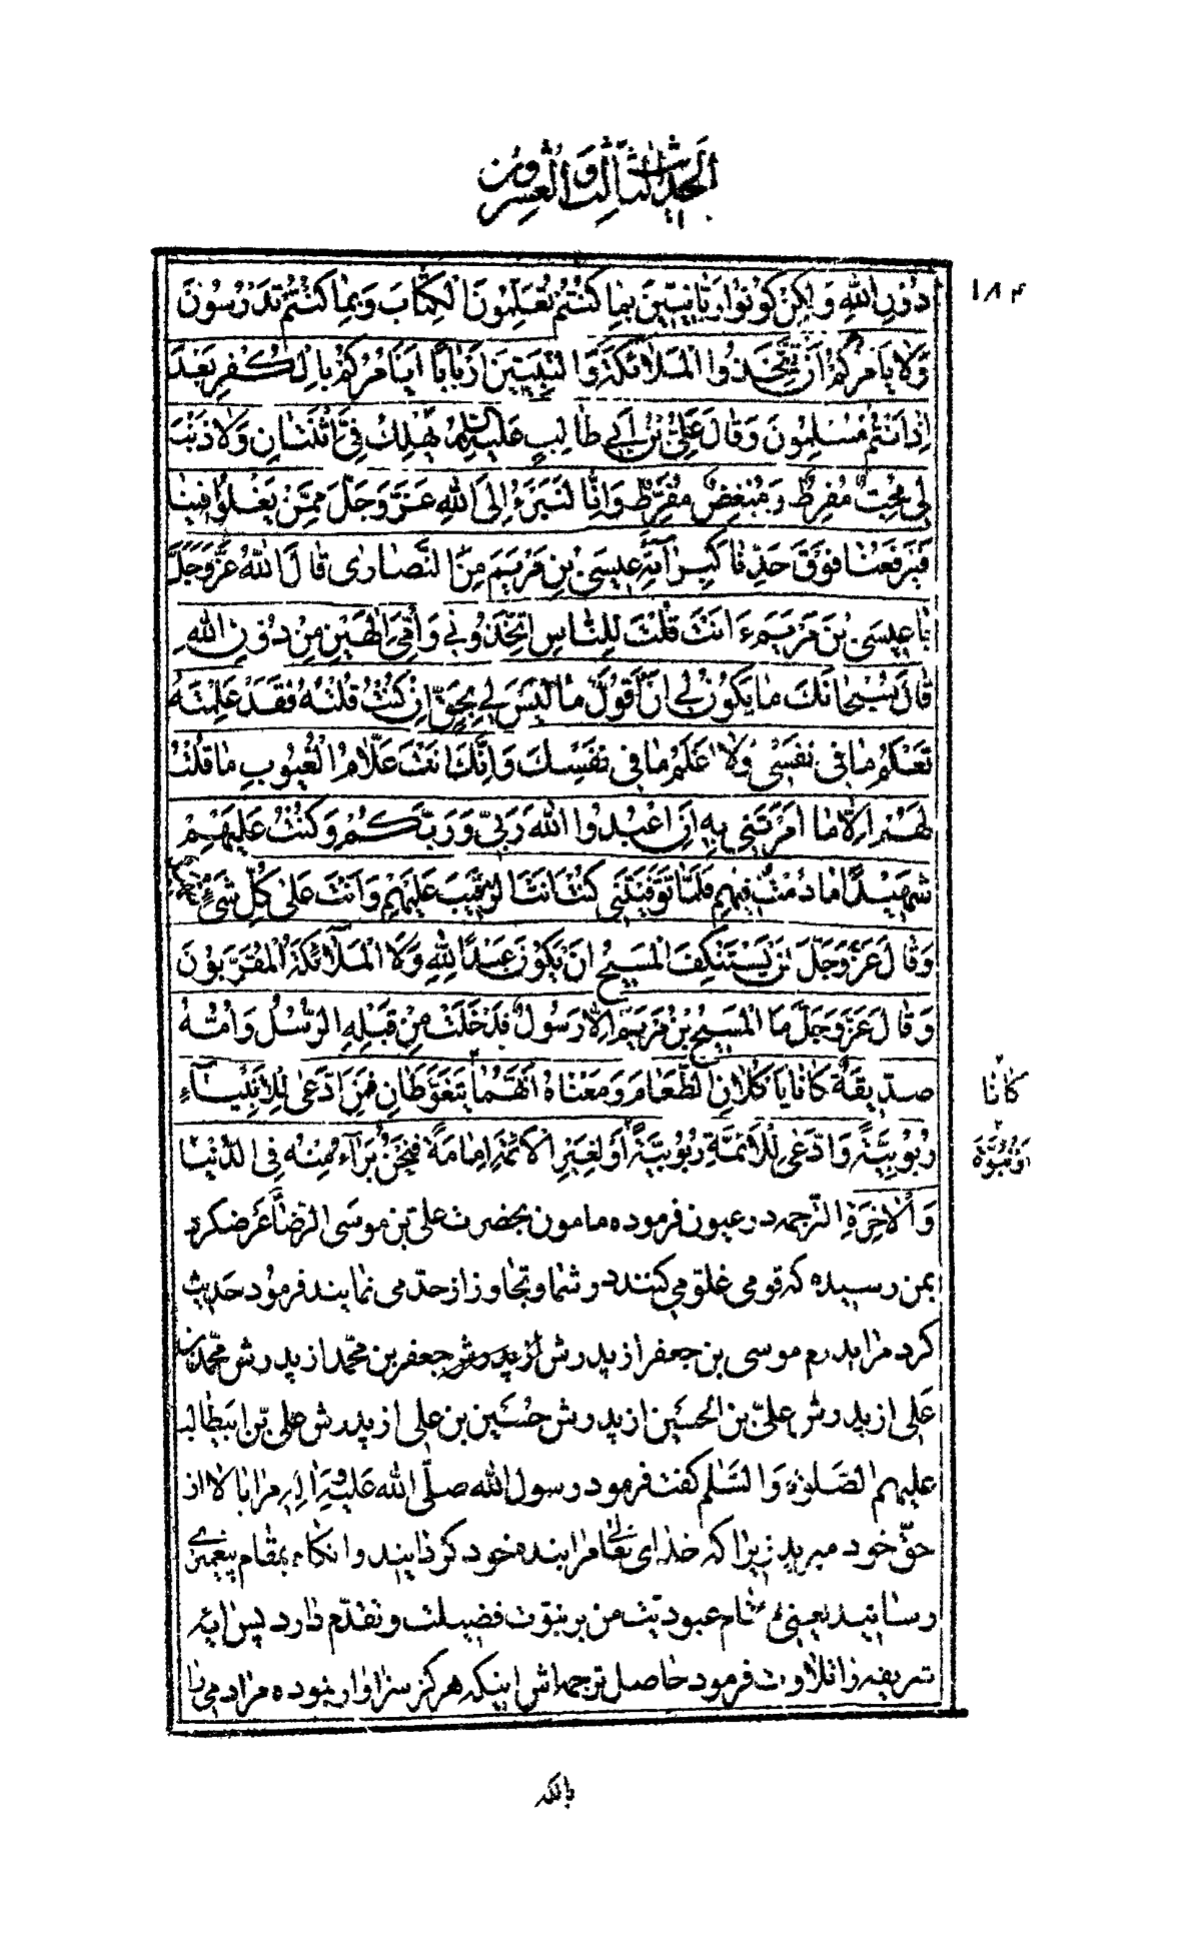 الحديث الثالث والعشرون
۱۸۴
دُونِ اللهِ وَلٰكِنْ كُونُوا رَبَّانِيّينَ بِمَا كُنْتُمْ تُعَلِّمُونَ الْكِتَابَ وَبِمَا كُنْتُمْ تَدْرُسُونَ
وَلَا يَأمُرَكُمْ اَنْ تَتَّخِذُوا الْمَلَائِكَةَ وَالنَّبِيّينَ اَرْبَابًا اَيَأمُرُكُمْ بِالْكُفْرِ بَعْدَ
اِذْ اَنْتُمْ مُسْلِمُونَ وَقَالَ عَلِيُّ بْنُ اَبِي طَالِبٍ عَلَيْهِ السَّلَامُ يَهْلِكُ فِيَّ اثْنَتَانِ وَلَا ذَنْبَ
لِي مُحِبٌّ مُفْرِطٌ وَمُبْغِضٌ مُفَرِّطٌ وَاِنَّا لَنَبْرَءُ اِلَى اللهِ عَزَّ وَجَلَّ مِمَّنْ يَغْلُوا فِينَا
فَيَرْفَعُنَا فَوْقَ حَدِّنَا كَبَرَآءَةِ عِيسَى بْنِ مَرْيَمَ مِنَ النَّصَارٰى قَالَ اللهُ عَزَّ وَجَلَّ
يَا عِيسَى بْنَ مَرْيَمَ ءَاَنْتَ قُلْتَ لِلنَّاسِ اتَّخِذُونِي وَاُمِّيَ اِلٰهَيْنِ مِنْ دُونِ اللهِ
قَالَ سُبْحَانَكَ مَا يَكُونُ لِي اَنْ اَقُولَ مَا لَيْسَ لِي بِحَقٍّ اِنْ كُنْتُ قُلْتُهُ فَقَدْ عَلِمْتَهُ
تَعْلَمُ مَا فِي نَفْسِي وَلَا اَعْلَمُ مَا فِي نَفْسِكَ وَاِنَّكَ اَنْتَ عَلَّامُ الْغُيُوبِ مَا قُلْتُ
لَهُمْ اِلَّا مَا اَمَرْتَنِي بِهِ اَنِ اعْبُدُوا اللهَ رَبِّي وَرَبَّكُمْ وَكُنْتُ عَلَيْهِمْ
شَهِيدًا مَا دُمْتُ فِيهِمْ فَلَمَّا تَوَفَّيْتَنِي كُنْتَ اَنْتَ الرَّقِيبَ عَلَيْهِمْ وَاَنْتَ عَلٰى كُلِّ شَيْءٍ شَهِيدٌ
وَقَالَ عَزَّ وَجَلَّ لَنْ يَسْتَنْكِفَ الْمَسِيحُ اَنْ يَكُونَ عَبْدًا لِلّٰهِ وَلَا الْمَلَآئِكَةُ الْمُقَرَّبُونَ
وَقَالَ عَزَّ وَجَلَّ مَا الْمَسِيحُ بْنُ مَرْيَمَ اِلَّا رَسُولٌ قَدْ خَلَتْ مِنْ قَبْلِهِ الرُّسُلُ وَاُمُّهُ
صِدِّيقَةٌ كَانَا يَأكُلَانِ الطَّعَامَ وَمَعْنَاهُ اَنَّهُمَا يَتَغَوَّطَانِ فَمَنِ ادَّعٰى لِلْاَنْبِيَآءِ
كانا
رُبُوبِيَّةً وَادَّعٰى لِلْاَئِمَّةِ رُبُوبِيَّةً اَوْ لِغَيْرِ الْاَئِمَّةِ اِمَامَةً فَنَحْنُ بُرَآءُ مِنْهُ فِي الدُّنْيَا
اَوْ نُبُوَّةً
وَالْاٰخِرَةِ الترجمه در عيون فرموده مامون بحضرت على بن موسى الرضا عرض كرد
بمن رسيده كه قومى غلو مى كنند در شما و تجاوز از حد مى نمايند فرمود حديث
كرد مرا پدرم موسى بن جعفر از پدرش جعفر بن محمد از پدرش محمد بن
على از پدرش على بن الحسين از پدرش حسين بن على از پدرش على بن ابيطالب
عليهم الصلوة والسلم كفت فرمود رسول الله صلى الله عليه واله مرا بالا از
حق خود مبريد زيرا كه خداى تعالى مرا بنده خود كردانيد و انكاه بمقام پيغمبرى
رسانيد يعنى مقام عبوديت من بر نبوت فضيلت و تقدم دارد پس ايه
شريفه را تلاوت فرمود حاصل ترجمه اش اينكه هركز سزاوار نبوده مردمى را
بانكه